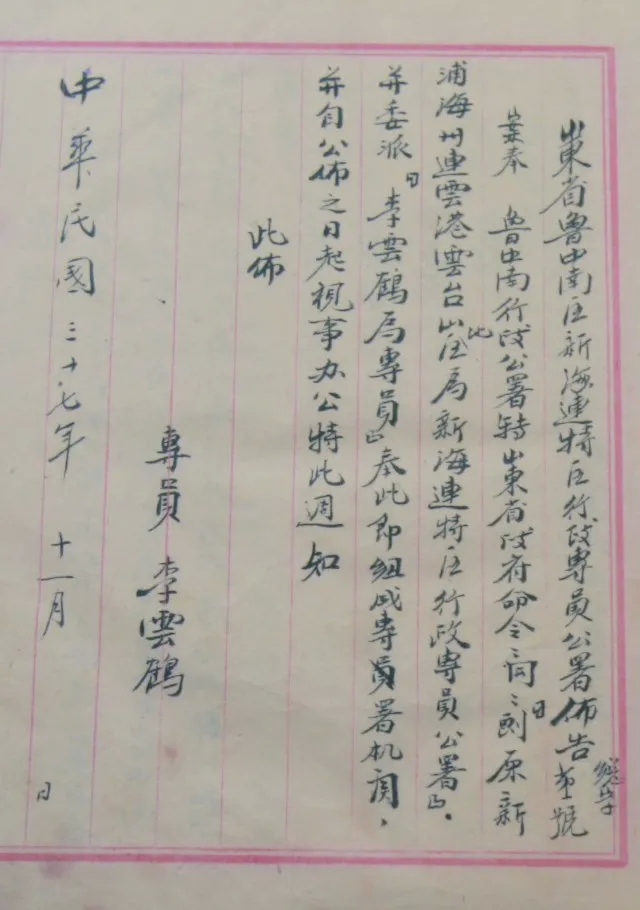 山東省魯中南区新海連特区行政專員公署佈告 總字第 號
案奉 魯中南行政公署轉山東省政府命令「劃原新
浦海州連雲港雲台山区為新海連特区行政專員公署」。
并委派「李雲鶴為專員」奉此即組成專員署机関，
并自公佈之日起視事办公特此週知
此佈
專員 李雲鶴
中華民國三十七年 十一月 日